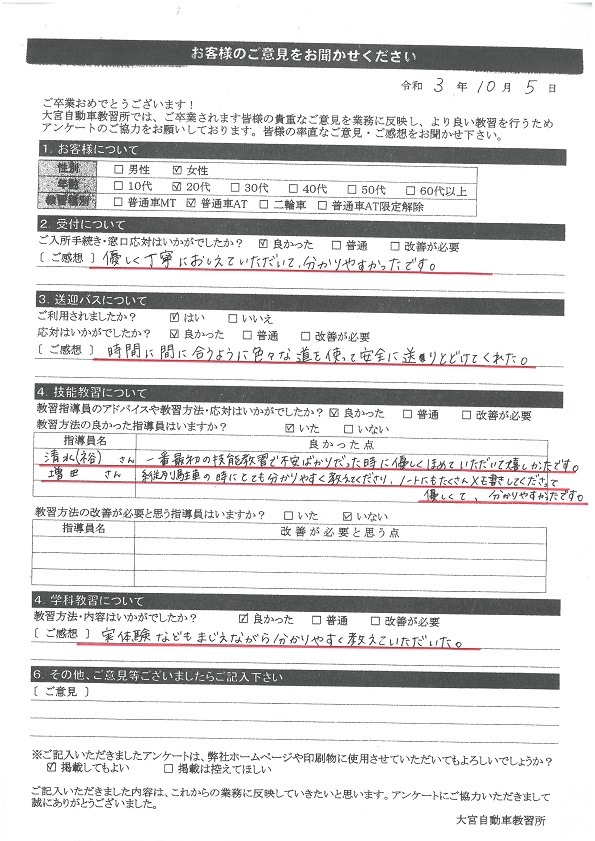 お客様のご意見をお聞かせください
令和 3 年 10 月 5 日
ご卒業おめでとうございます！
大宮自動車教習所では、ご卒業されます皆様の貴重なご意見を業務に反映し、より良い教習を行うため
アンケートのご協力をお願いしております。皆様の率直なご意見・ご感想をお聞かせ下さい。
1. お客様について
性別 □ 男性 ☑ 女性
年齢 □ 10代 ☑ 20代 □ 30代 □ 40代 □ 50代 □ 60代以上
教習種別 □ 普通車MT ☑ 普通車AT □ 二輪車 □ 普通車AT限定解除
2. 受付について
ご入所手続き・窓口応対はいかがでしたか？ ☑ 良かった □ 普通 □ 改善が必要
〔 ご感想 〕 優しく丁寧におしえていただいて、分かりやすかったです。
3. 送迎バスについて
ご利用されましたか？ ☑ はい □ いいえ
応対はいかがでしたか？ ☑ 良かった □ 普通 □ 改善が必要
〔 ご感想 〕 時間に間に合うように色々な道を使って安全に送りとどけてくれた。
4. 技能教習について
教習指導員のアドバイスや教習方法・応対はいかがでしたか？ ☑ 良かった □ 普通 □ 改善が必要
教習方法の良かった指導員はいますか？ ☑ いた □ いない
指導員名 良かった点
清水(裕) さん 一番最初の技能教習で不安ばかりだった時に優しくほめていただいて嬉しかたです。
増田 さん 縦列駐車の時にとても分かりやすく教えてくださり、ノートにもたくさんメモ書きしてくださって
優しくて、分かりやすかたです。
教習方法の改善が必要と思う指導員はいますか？ □ いた ☑ いない
指導員名 改善が必要と思う点
4. 学科教習について
教習方法・内容はいかがでしたか？ ☑ 良かった □ 普通 □ 改善が必要
〔 ご感想 〕 実体験などもまじえながら分かりやすく教えていただいた。
6. その他、ご意見等ございましたらご記入下さい
〔 ご意見 〕
※ご記入いただきましたアンケートは、弊社ホームページや印刷物に使用させていただいてもよろしいでしょうか？
☑ 掲載してもよい □ 掲載は控えてほしい
ご記入いただきました内容は、これからの業務に反映していきたいと思います。アンケートにご協力いただきまして
誠にありがとうございました。
大宮自動車教習所